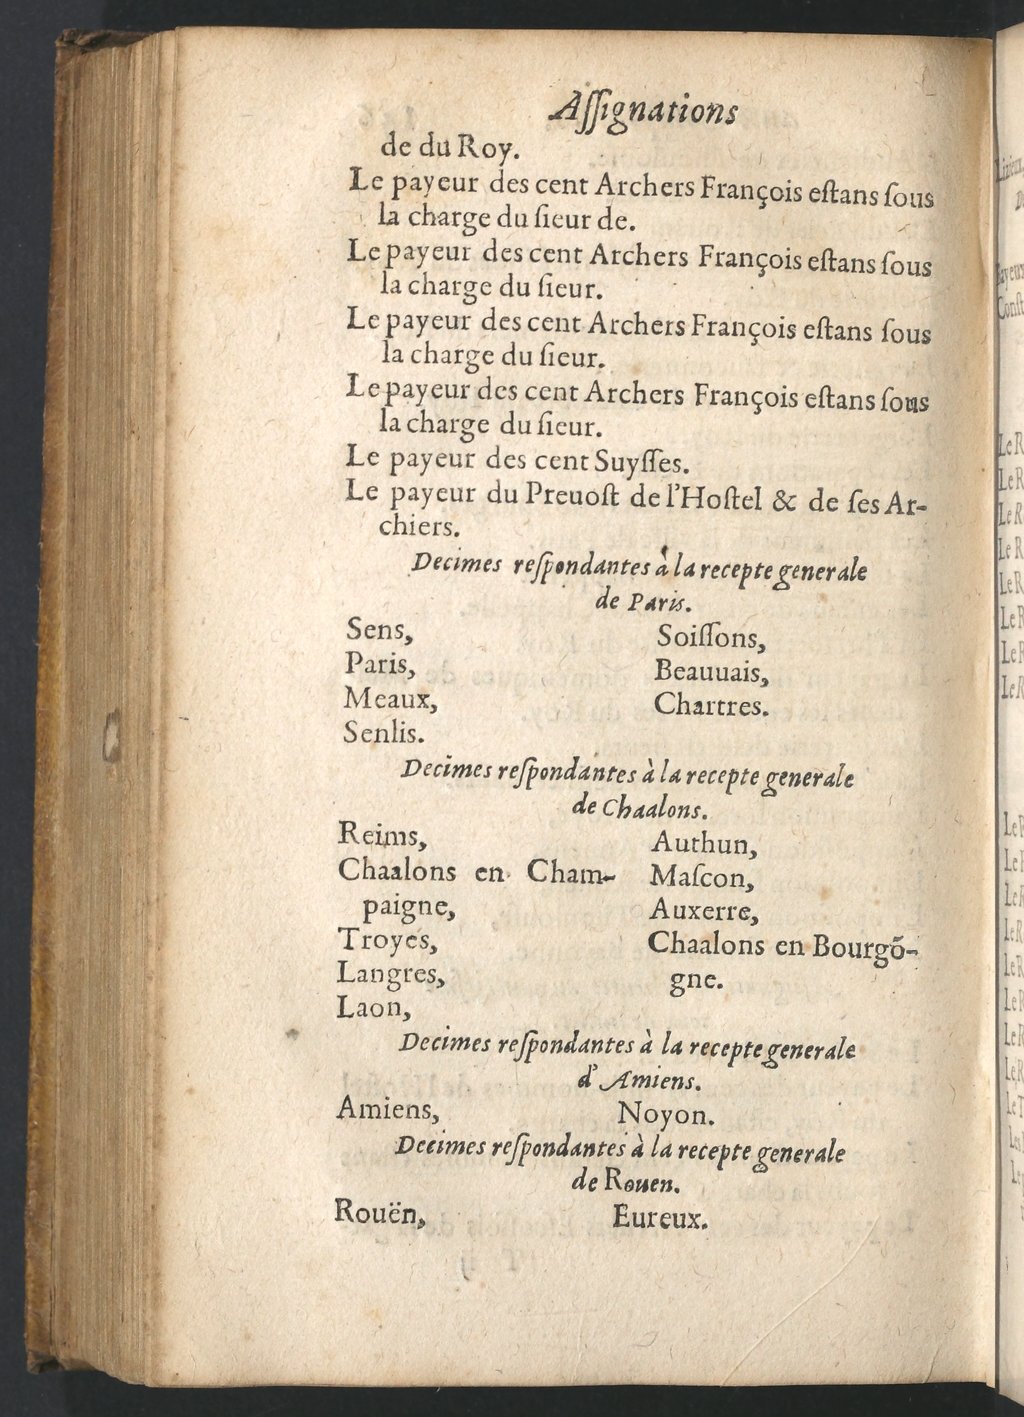 Aſſignations
de du Roy.
Le payeur des cent Archers François eſtans ſous
la charge du ſieur de.
Le payeur des cent Archers François eſtans ſous
la charge du ſieur.
Le payeur des cent Archers François eſtans ſous
la charge du ſieur.
Le payeur des cent Archers François eſtans ſous
la charge du ſieur.
Le payeur des cent Suyſſes.
Le payeur du Preuoſt de l'Hoſtel & de ſes Ar-
chiers.
Decimes reſpondantes à la recepte generale
de Paris.
Sens,
Paris,
Meaux,
Senlis.
Soiſſons,
Beauuais,
Chartres.
Decimes reſpondantes à la recepte generale
de Chaalons.
Reims,
Chaalons en Cham-
paigne,
Troyes,
Langres,
Laon,
Authun,
Maſcon,
Auxerre,
Chaalons en Bourgõ-
gne.
Decimes reſpondantes à la recepte generale
d'Amiens.
Amiens, Noyon.
Decimes reſpondantes à la recepte generale
de Rouen.
Rouën, Eureux.